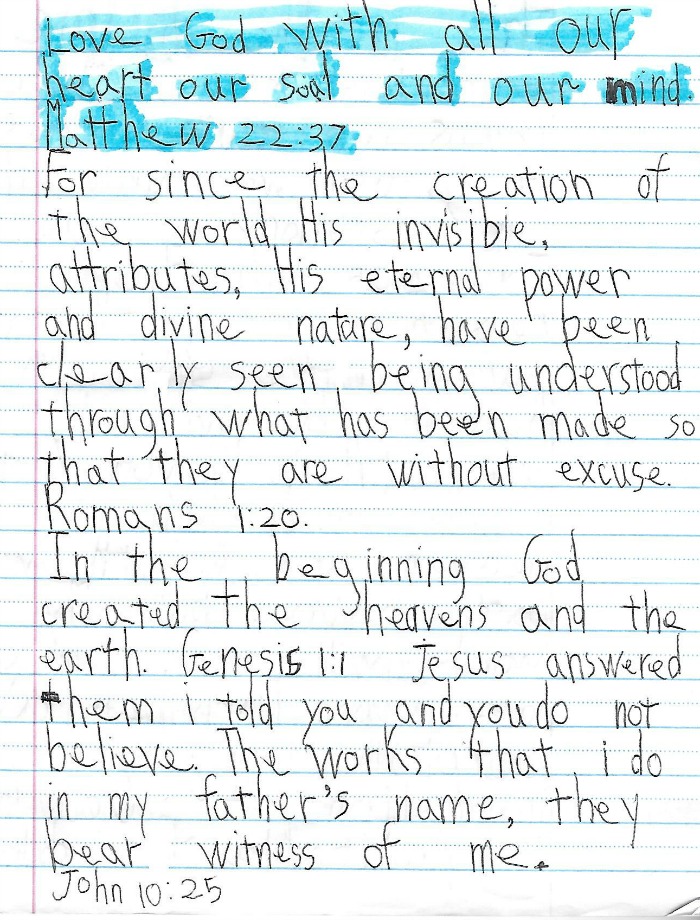 Love God with all our
heart our soul and our mind.
Matthew 22:37.
For since the creation of
the world His invisible,
attributes, His eternal power
and divine nature, have been
clearly seen being understood
through what has been made so
that they are without excuse.
Romans 1:20.
In the beginning God
created the heavens and the
earth. Genesis 1:1 Jesus answered
them i told you and you do not
believe. The works that i do
in my father's name, they
bear witness of me.
John 10:25